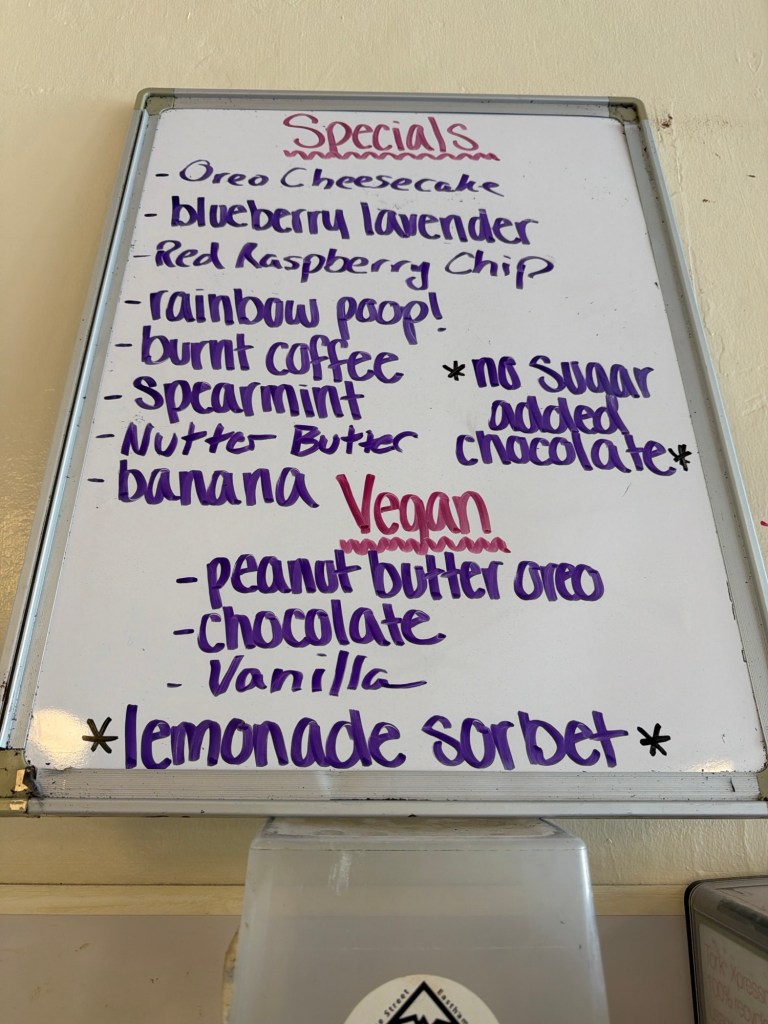 Specials
- Oreo Cheesecake
- blueberry lavender
- Red Raspberry Chip
- rainbow poop!
- burnt coffee
- spearmint
- Nutter Butter
- banana
*no sugar
added
chocolate*
Vegan
- peanut butter oreo
- chocolate
- Vanilla
*lemonade sorbet*
Street